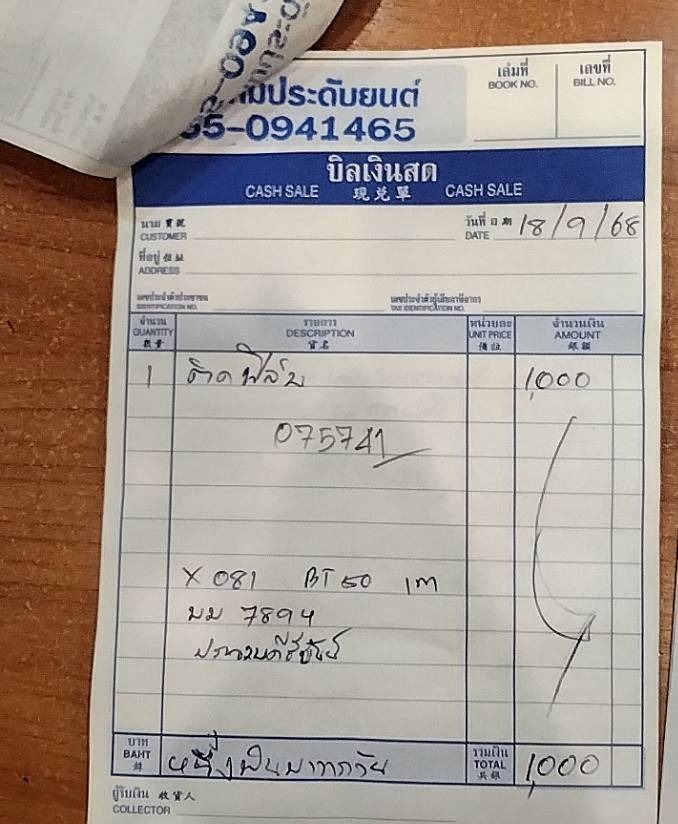 ประดับยนต์
55-0941465
เล่มที่ เลขที่
BOOK NO. BILL NO.
บิลเงินสด
CASH SALE 現兌單 CASH SALE
นาม 寶號 วันที่ 日期
CUSTOMER DATE 18/9/68
ที่อยู่ 住址
ADDRESS
เลขประจำตัวประชาชน เลขประจำตัวผู้เสียภาษีอากร
IDENTIFICATION NO. TAX IDENTIFICATION NO.
จำนวน รายการ หน่วยละ จำนวนเงิน
QUANTITY DESCRIPTION UNIT PRICE AMOUNT
數量 貨名 價位 銀額
1 ติดฟิล์ม 1,000
075741
X 081 BT50 1m
บม 7894
บาท รวมเงิน
BAHT หนึ่งพันบาทถ้วน TOTAL 1,000
銖 共銀
ผู้รับเงิน 收貨人
COLLECTOR